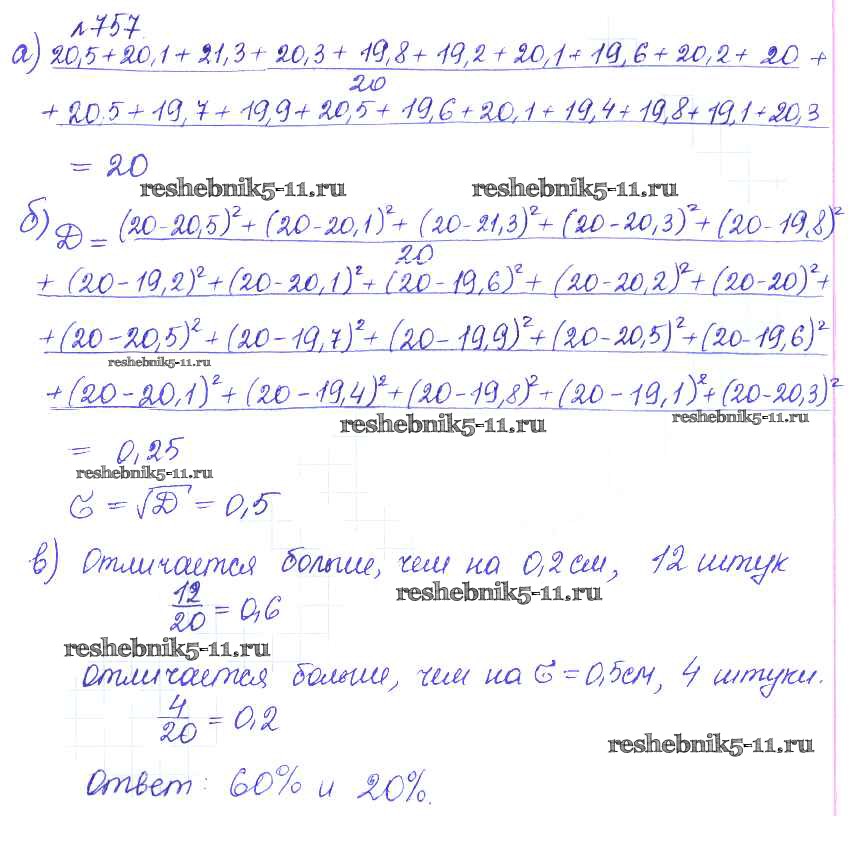 №757.
а) 20,5+20,1+21,3+20,3+19,8+19,2+20,1+19,6+20,2+20+
20
+20.5+19,7+19,9+20,5+19,6+20,1+19,4+19,8+19,1+20,3
= 20
reshebnik5-11.ru reshebnik5-11.ru
б) D = (20-20,5)²+(20-20,1)²+(20-21,3)²+(20-20,3)²+(20-19,8)²
20
+(20-19,2)²+(20-20,1)²+(20-19,6)²+(20-20,2)²+(20-20)²+
+(20-20,5)²+(20-19,7)²+(20-19,9)²+(20-20,5)²+(20-19,6)²
reshebnik5-11.ru
+(20-20,1)²+(20-19,4)²+(20-19,8)²+(20-19,1)²+(20-20,3)²
reshebnik5-11.ru reshebnik5-11.ru
= 0,25
reshebnik5-11.ru
σ = √D = 0,5
в) Отличается больше, чем на 0,2см, 12 штук
12/20 = 0,6
reshebnik5-11.ru
reshebnik5-11.ru
Отличается больше, чем на σ = 0,5см, 4 штуки.
4/20 = 0,2
reshebnik5-11.ru
Ответ: 60% и 20%.